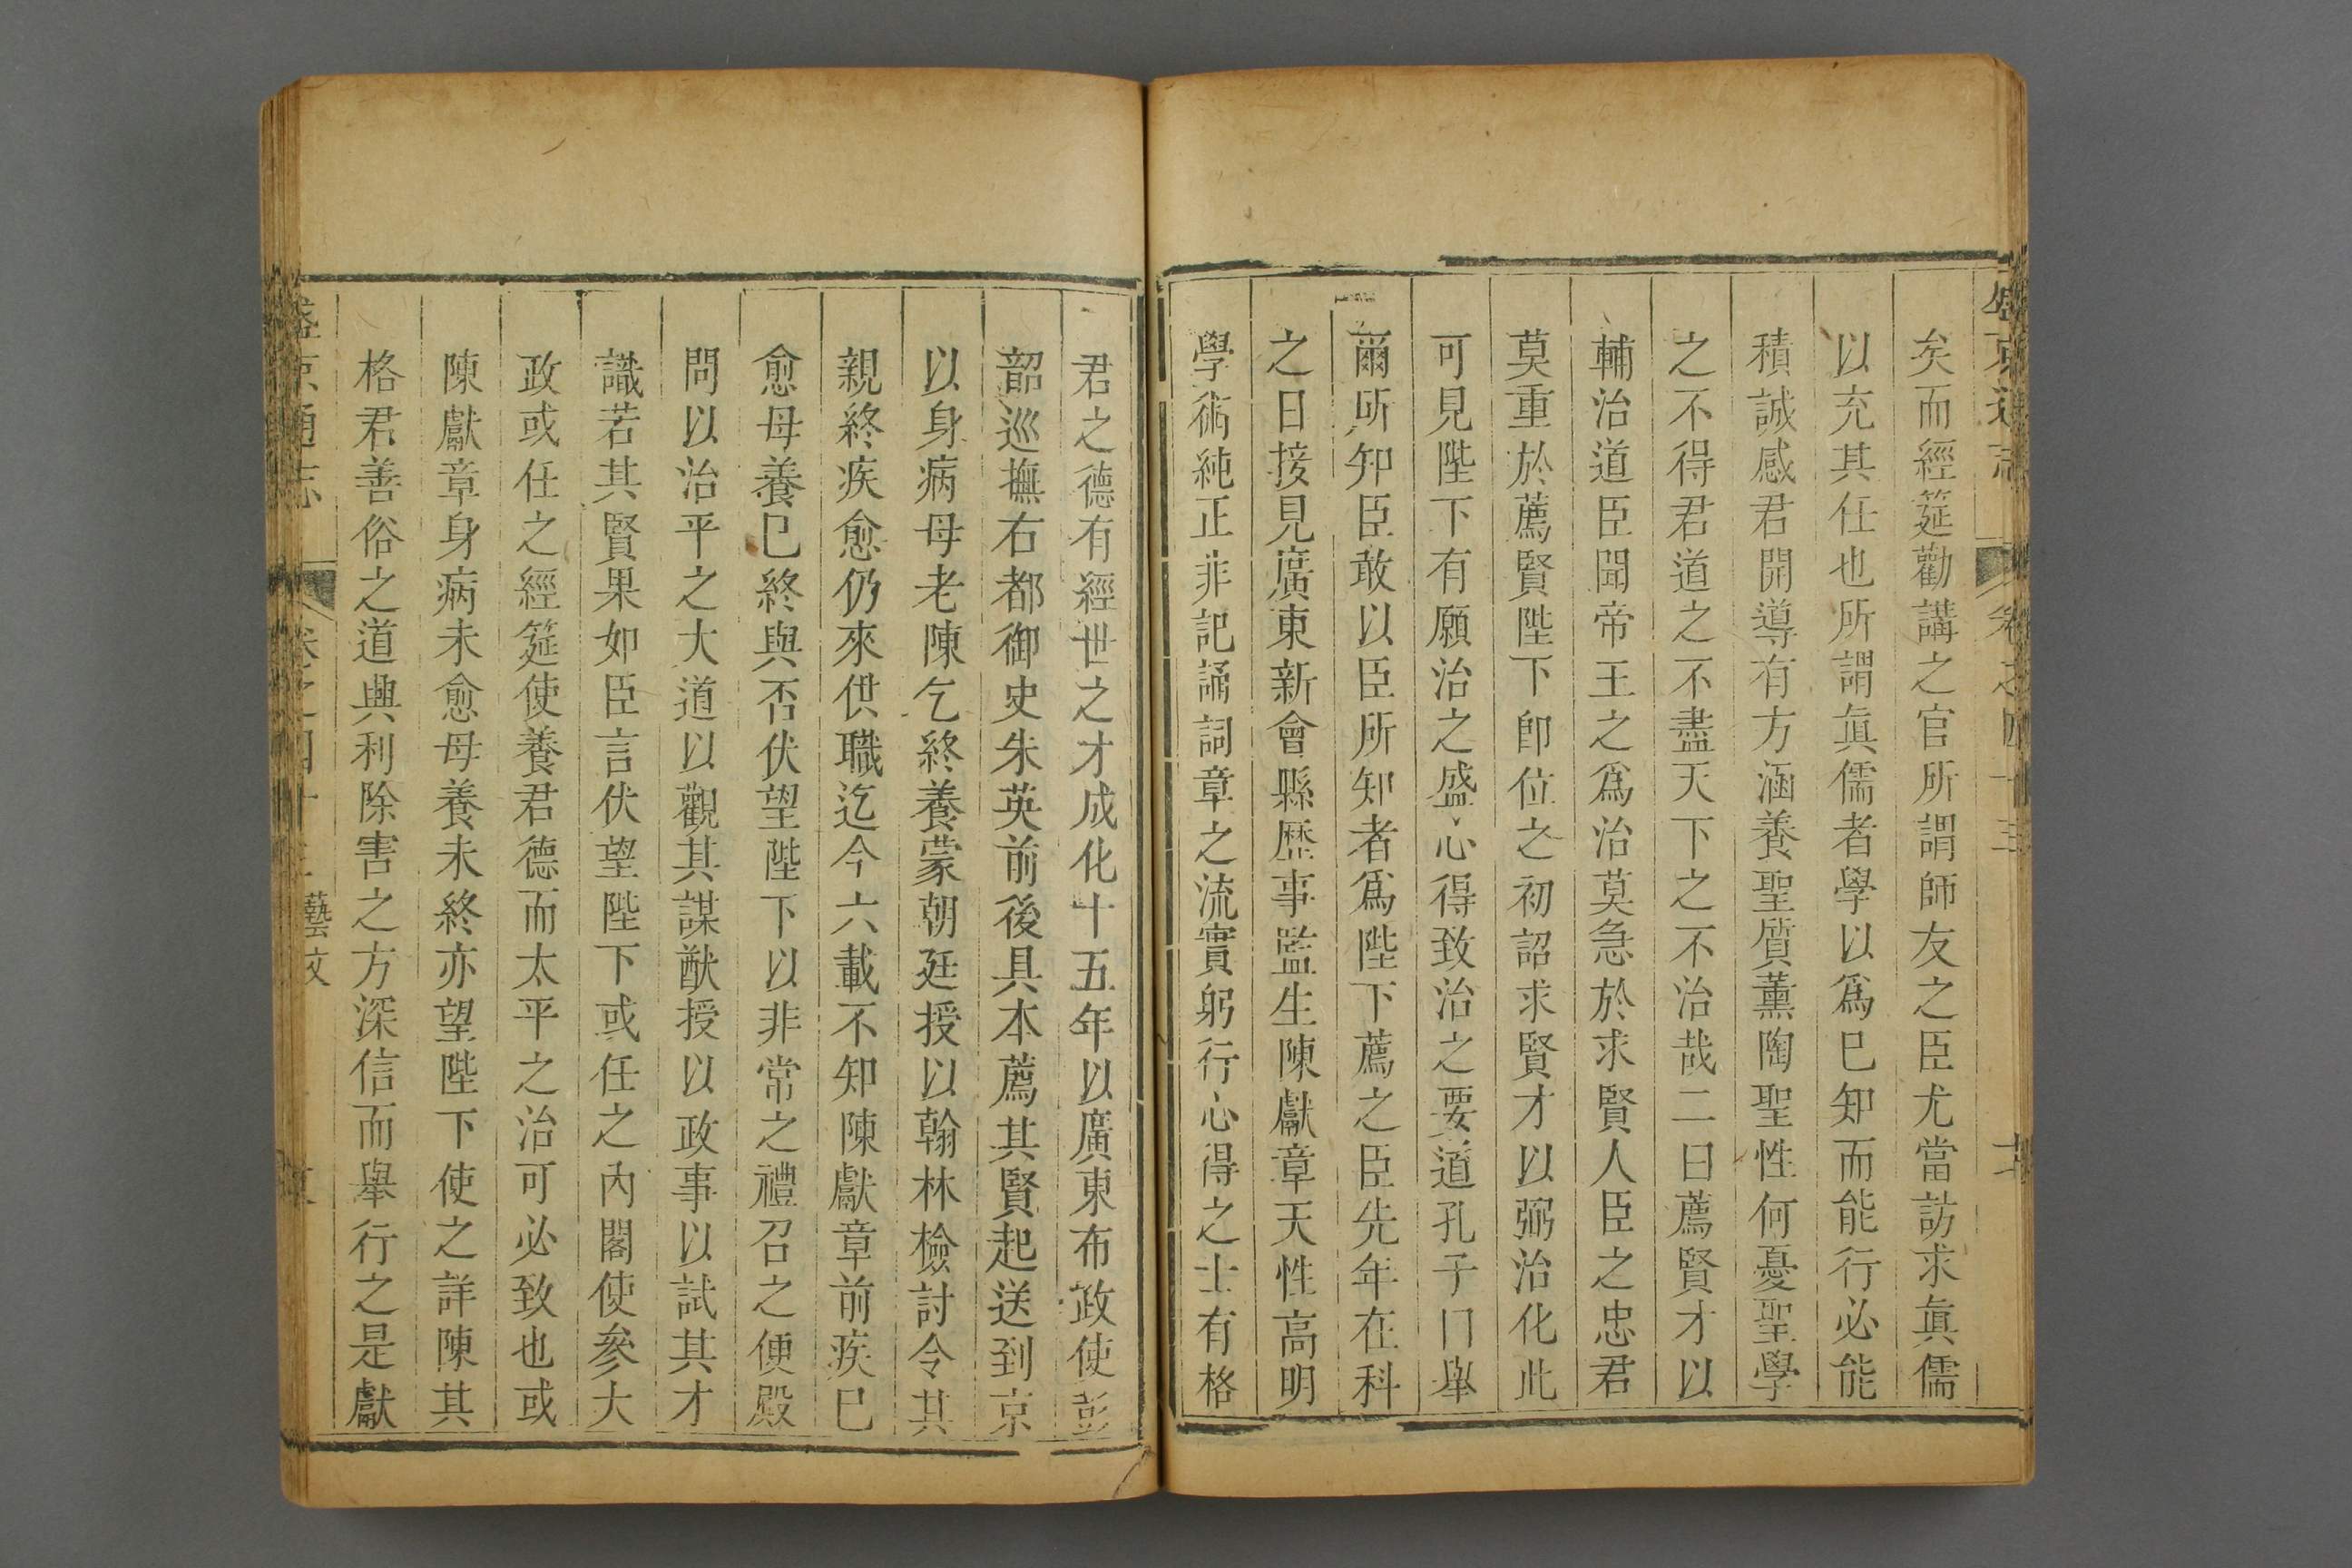 矣而經筵勸講之官所謂師友之臣尤當訪求眞儒
以充其任也所謂眞儒者學以爲巳知而能行必能
積誠感君開導有方涵養聖質薰陶聖性何憂聖學
之不得君道之不盡天下之不治哉二曰薦賢才以
輔治道臣聞帝王之爲治莫急於求賢人臣之忠君
莫重於薦賢陛下卽位之初詔求賢才以弼治化此
可見陛下有願治之盛心得致治之要道孔子門舉
爾所知臣敢以臣所知者爲陛下薦之臣先年在科
之日接見廣東新會縣歷事監生陳獻章天性高明
學術純正非記誦詞章之流實躬行心得之士有格
君之德有經世之才成化十五年以廣東布政使彭
韶巡撫右都御史朱英前後具本薦其賢起送到京
以身病母老陳乞終養蒙朝廷授以翰林檢討令其
親終疾愈仍來供職迄今六載不知陳獻章前疾巳
愈母養巳終與否伏望陛下以非常之禮召之便殿
問以治平之大道以觀其謀猷授以政事以試其才
識若其賢果如臣言伏望陛下或任之內閣使參大
政或任之經筵使養君德而太平之治可必致也或
陳獻章身病未愈母養未終亦望陛下使之詳陳其
格君善俗之道興利除害之方深信而舉行之是獻
盛京通志 卷之四十三 藝文